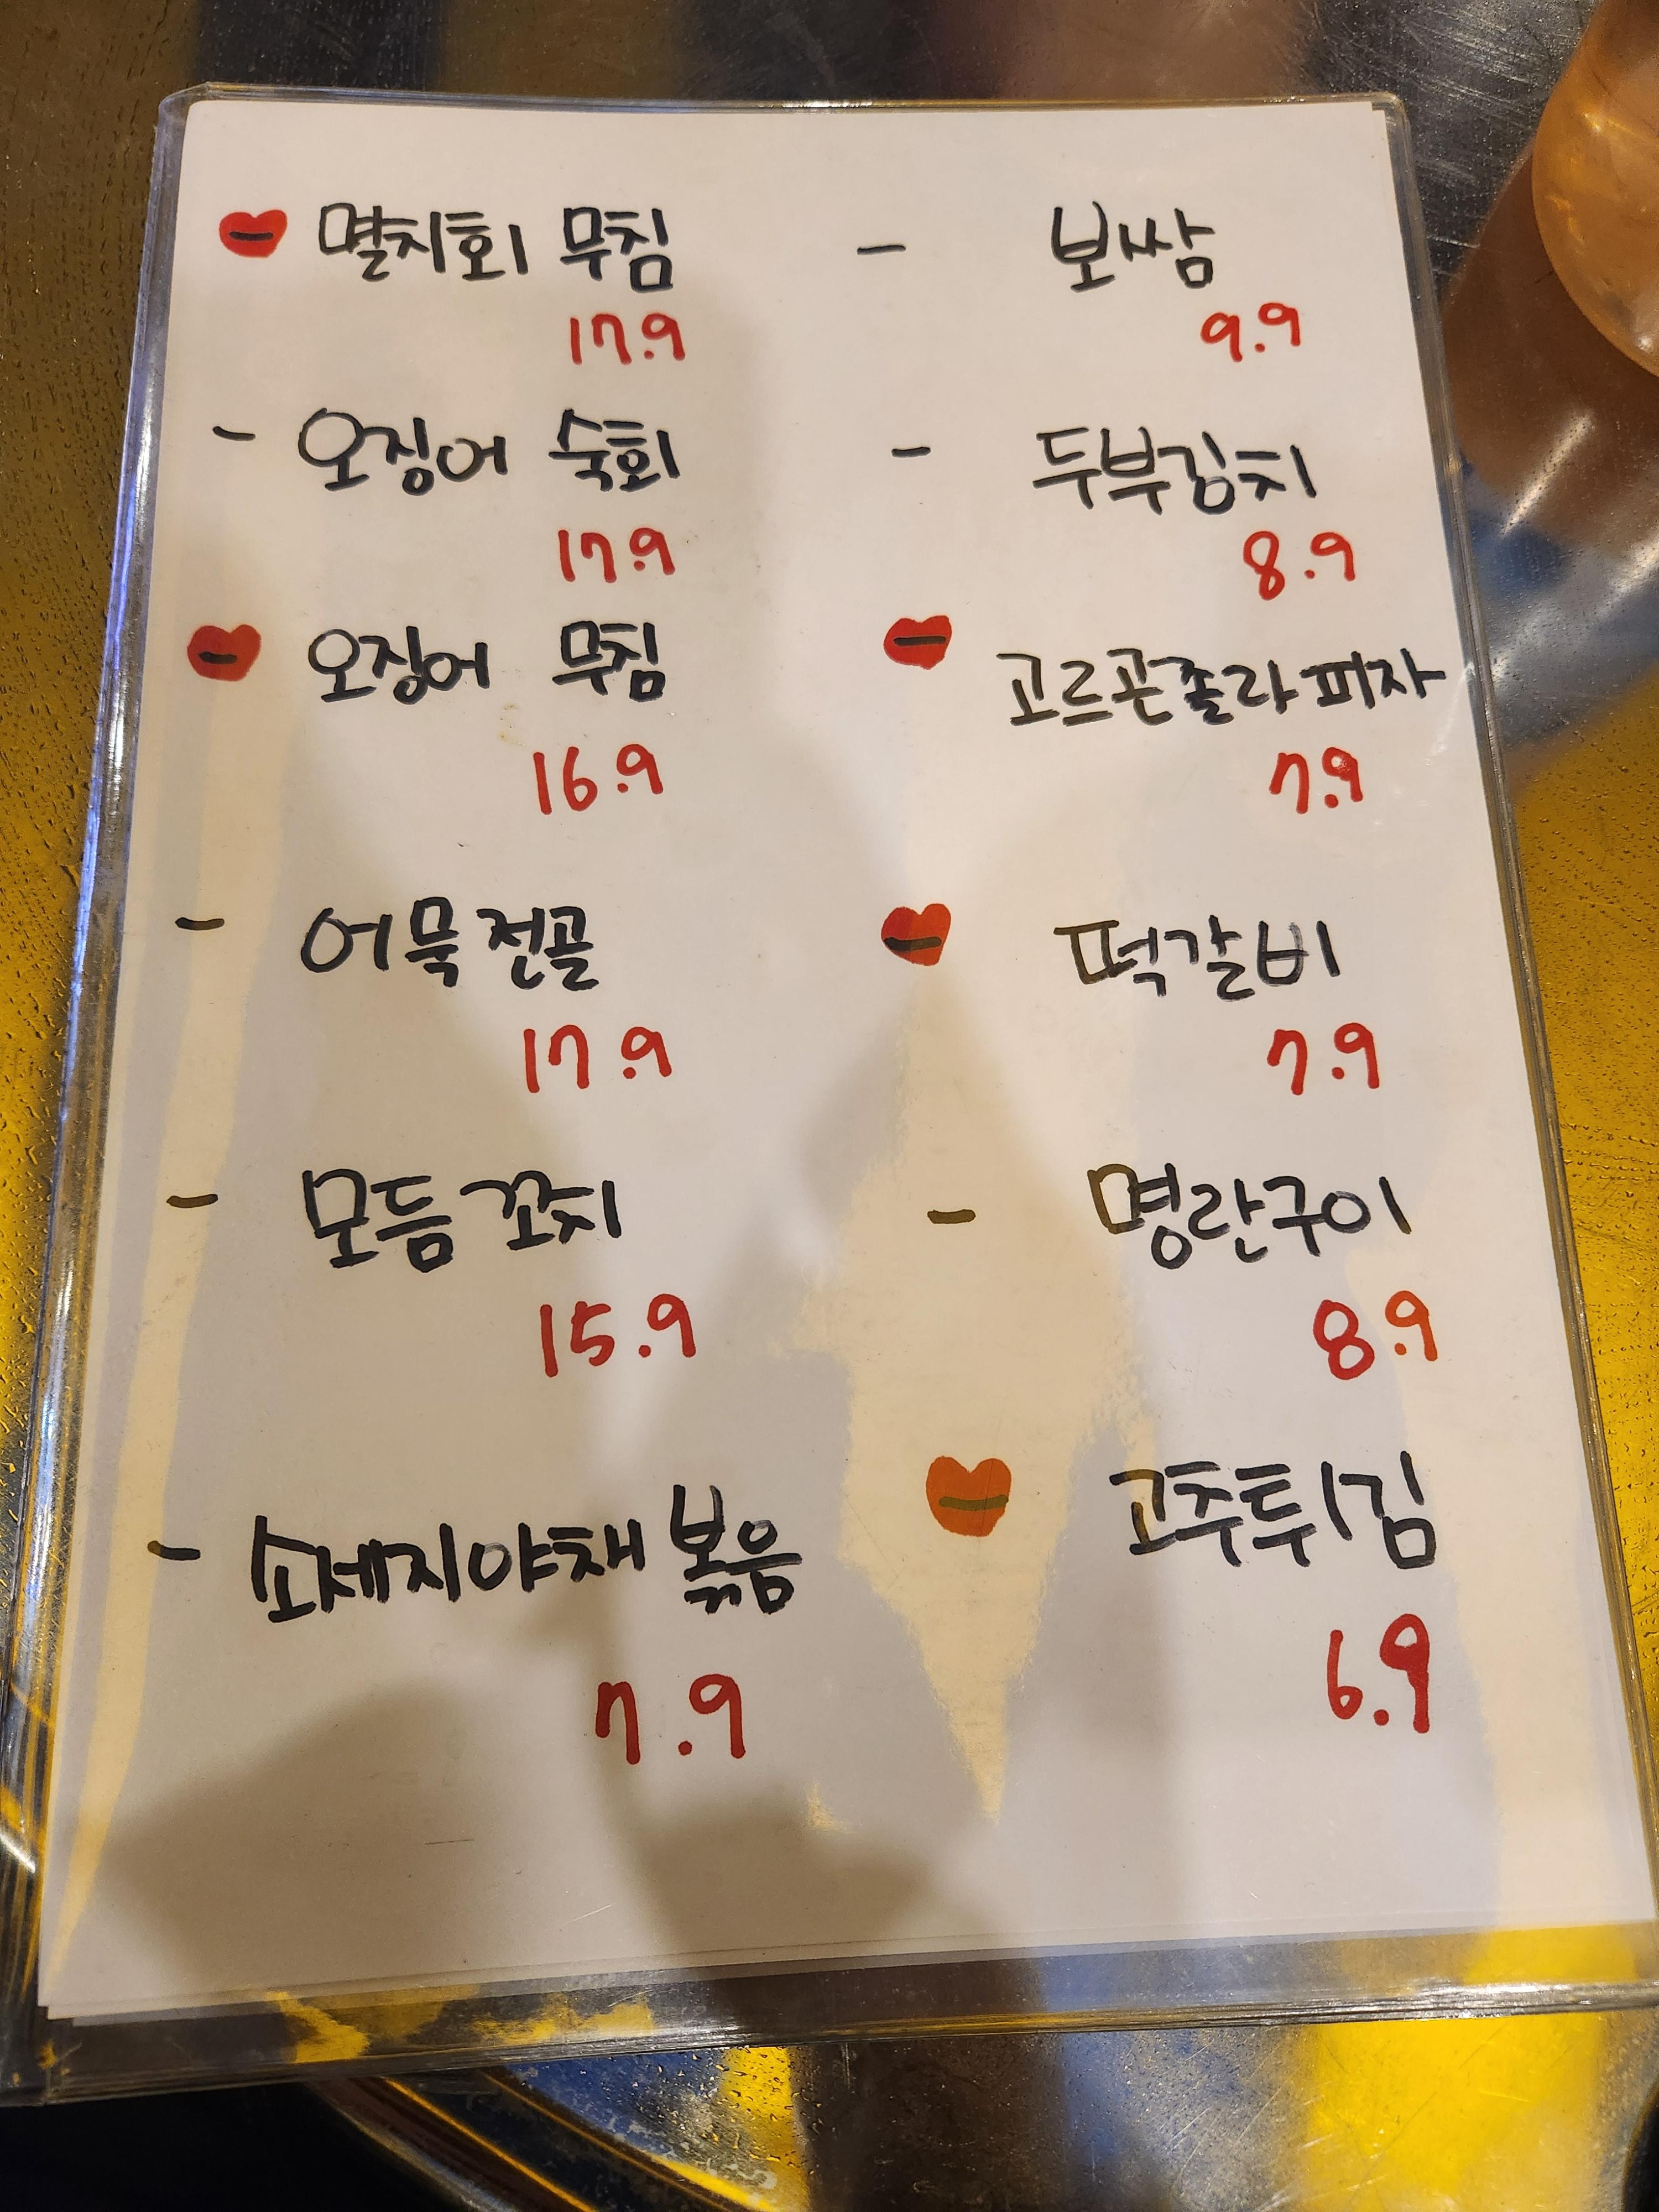 - 멸치회 무침
17.9
- 오징어 숙회
17.9
- 오징어 무침
16.9
- 어묵전골
17.9
- 모듬꼬치
15.9
- 소세지야채볶음
7.9
- 보쌈
9.9
- 두부김치
8.9
- 고르곤졸라피자
7.9
- 떡갈비
7.9
- 명란구이
8.9
- 고추튀김
6.9